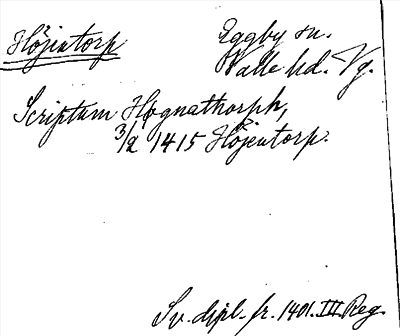 Höjentorp
Eggby sn.
Valle hd. Vg.
Scriptum Høgnathorph,
3/2 1415 Höjentorp.
Sv. dipl. fr. 1401. III. Reg.